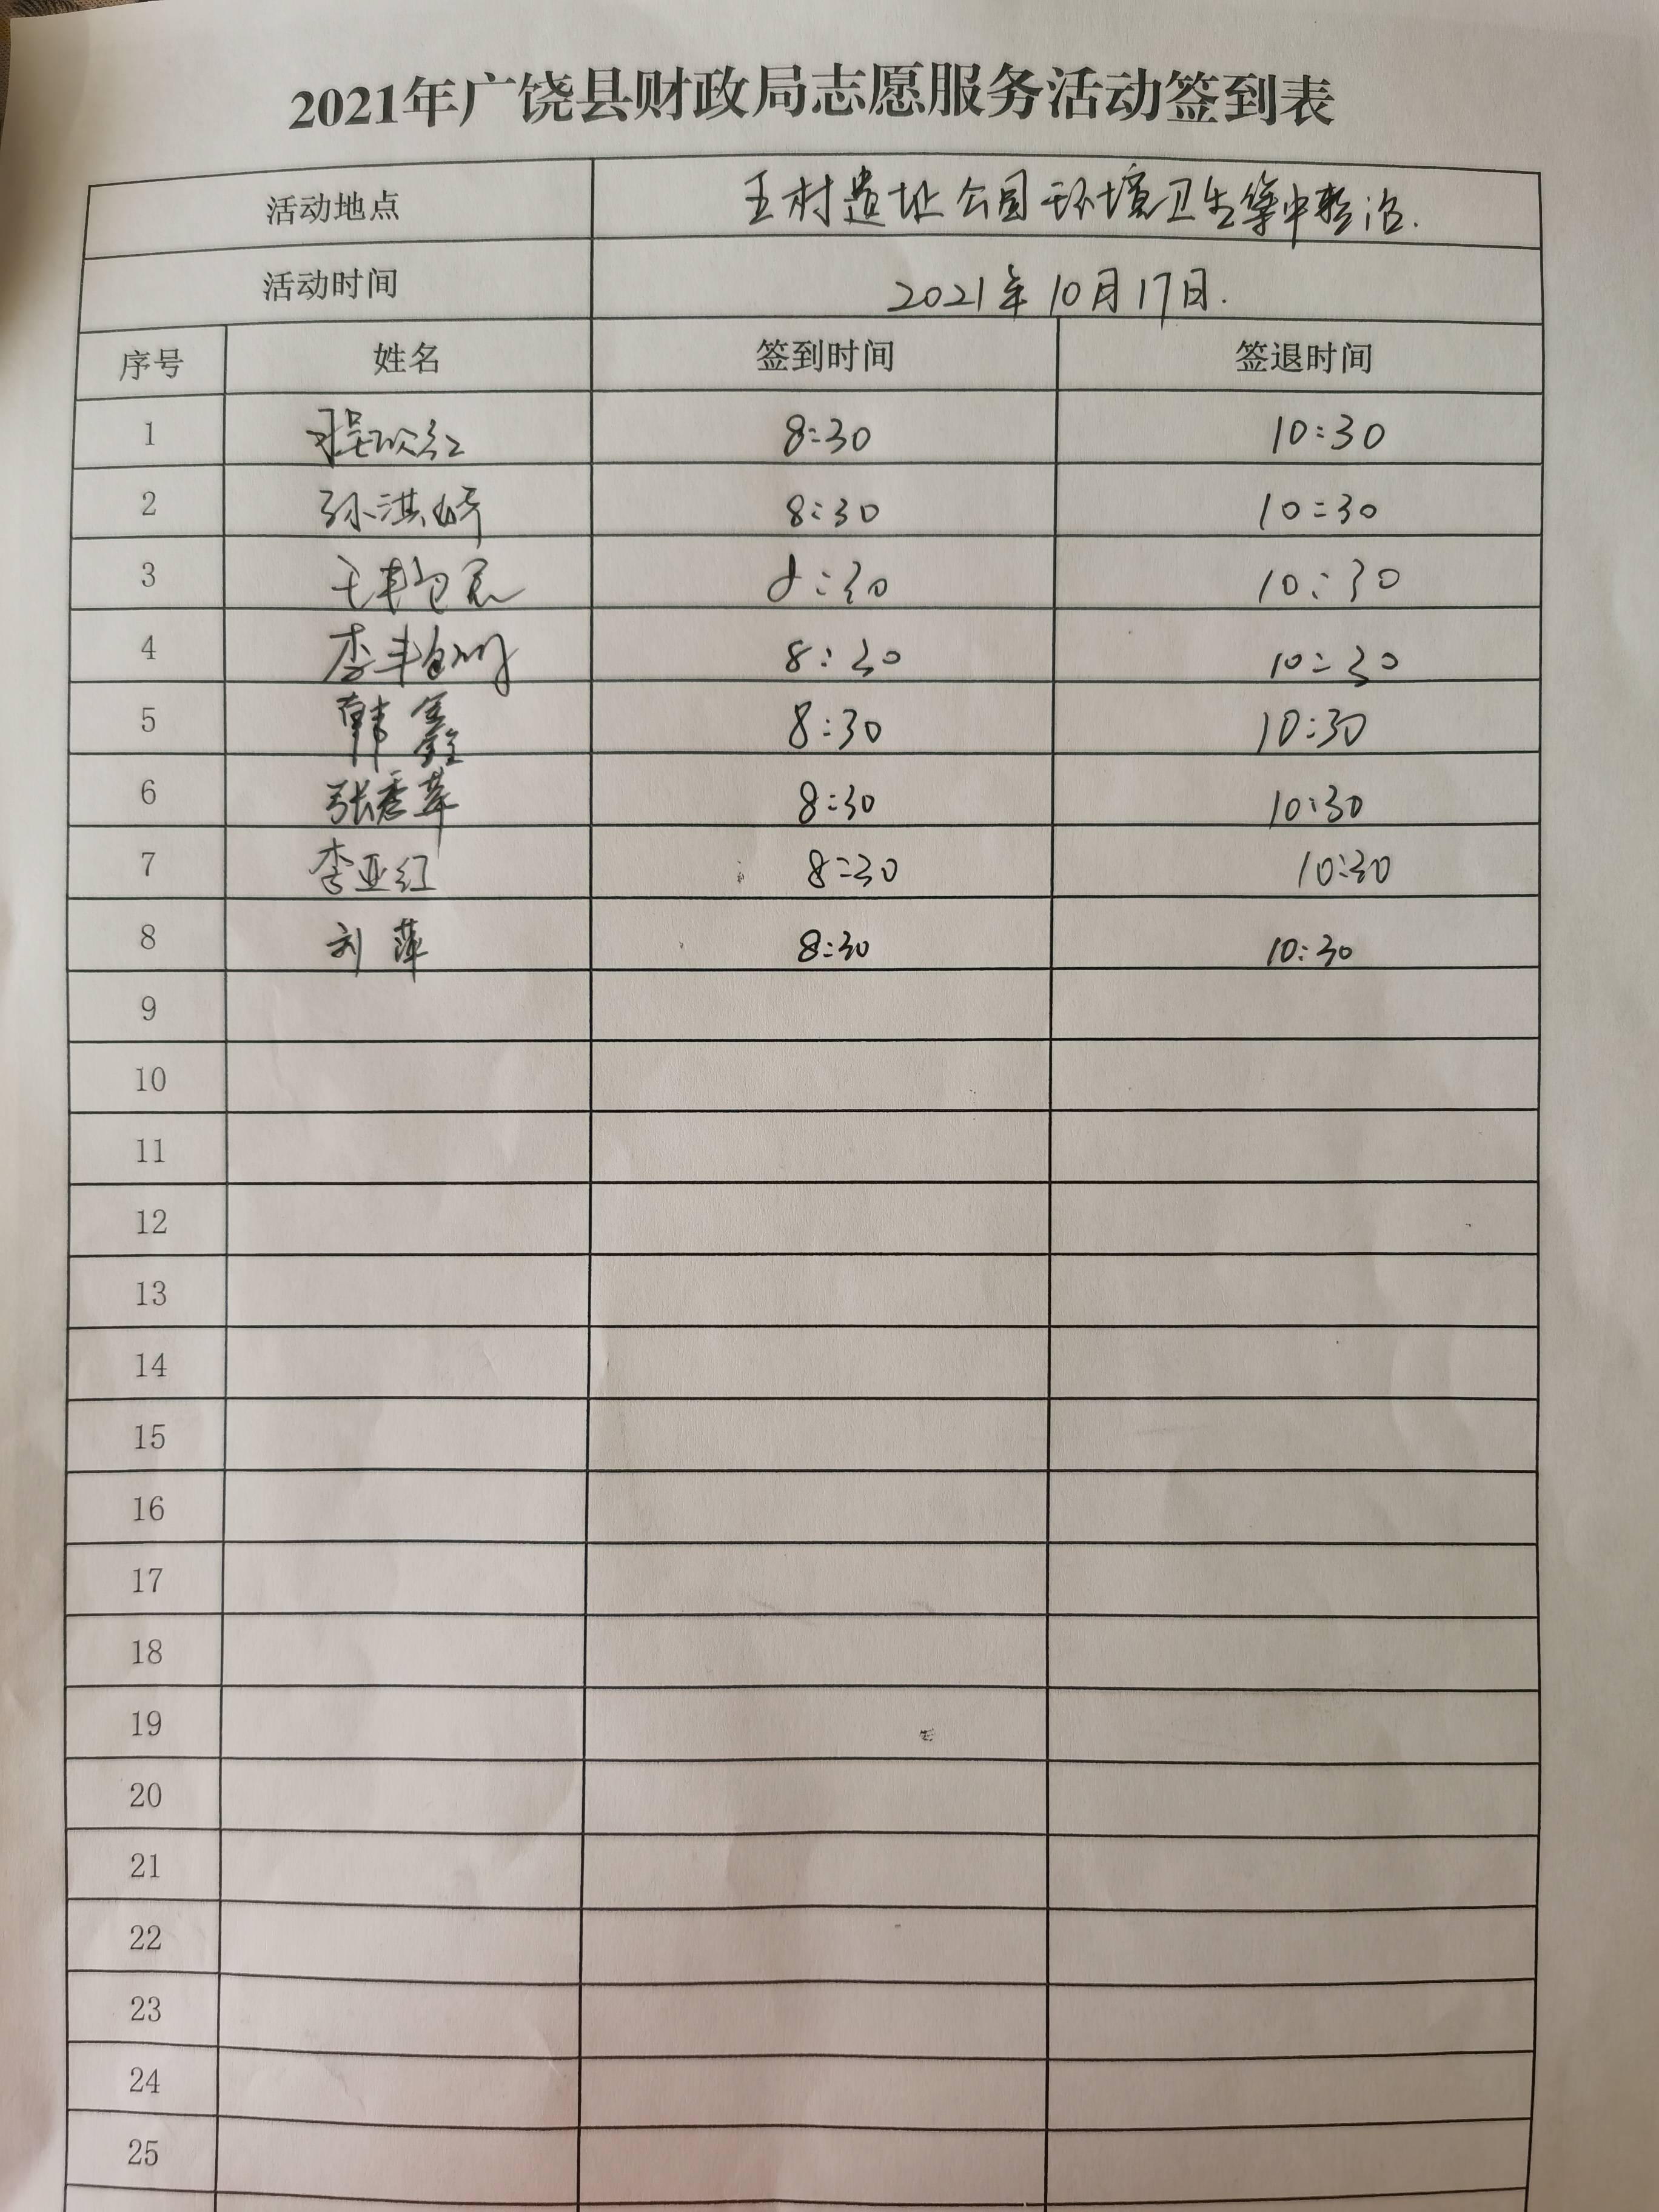 2021年广饶县财政局志愿服务活动签到表
活动地点 王村遗址公园环境卫生集中整治.
活动时间 2021年10月17日.
序号 姓名 签到时间 签退时间
1 8:30 10:30
2 孙淇婷 8:30 10:30
3 8:30 10:30
4 李 8:30 10:30
5 韩鑫 8:30 10:30
6 张秀萍 8:30 10:30
7 李亚红 8:30 10:30
8 刘萍 8:30 10:30
9
10
11
12
13
14
15
16
17
18
19
20
21
22
23
24
25